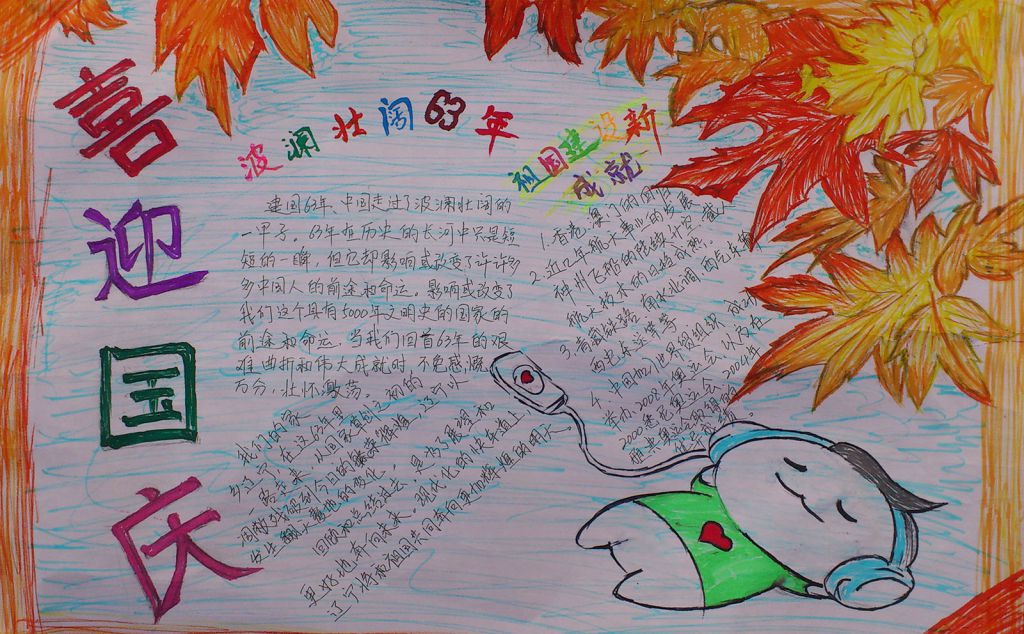 喜迎国庆
波澜壮阔63年
建国63年、中国走过了波澜壮阔的
一甲子。63年在历史的长河中只是短
短的一瞬，但它却影响或改变了许许多
多中国人的前途和命运。影响或改变了
我们这个具有5000年文明史的国家的
前途和命运。当我们回首63年的艰
难曲折和伟大成就时，不免感慨
万分，壮怀激荡。
我们的家
乡辽宁，在这63年里
一路走来，从国家草创之初的
发生翻天覆地的变化，
回顾和总结过去，是为了展望和
更好地奔向未来。现代化的快车道上，
辽宁将和祖国共同奔向更加辉煌的明天。
祖国建设新
成就
1.香港、澳门的回归
2.近几年航天事业的发展
神州飞船的陆续升空、载人
航天技术的日趋成熟。
3.青藏铁路 南水北调 西气东输
西电东送等等
4.中国加入世界贸组织 成功
举办2008年奥运会 以及在
2000悉尼奥运会 2004年
雅典奥运会取得的